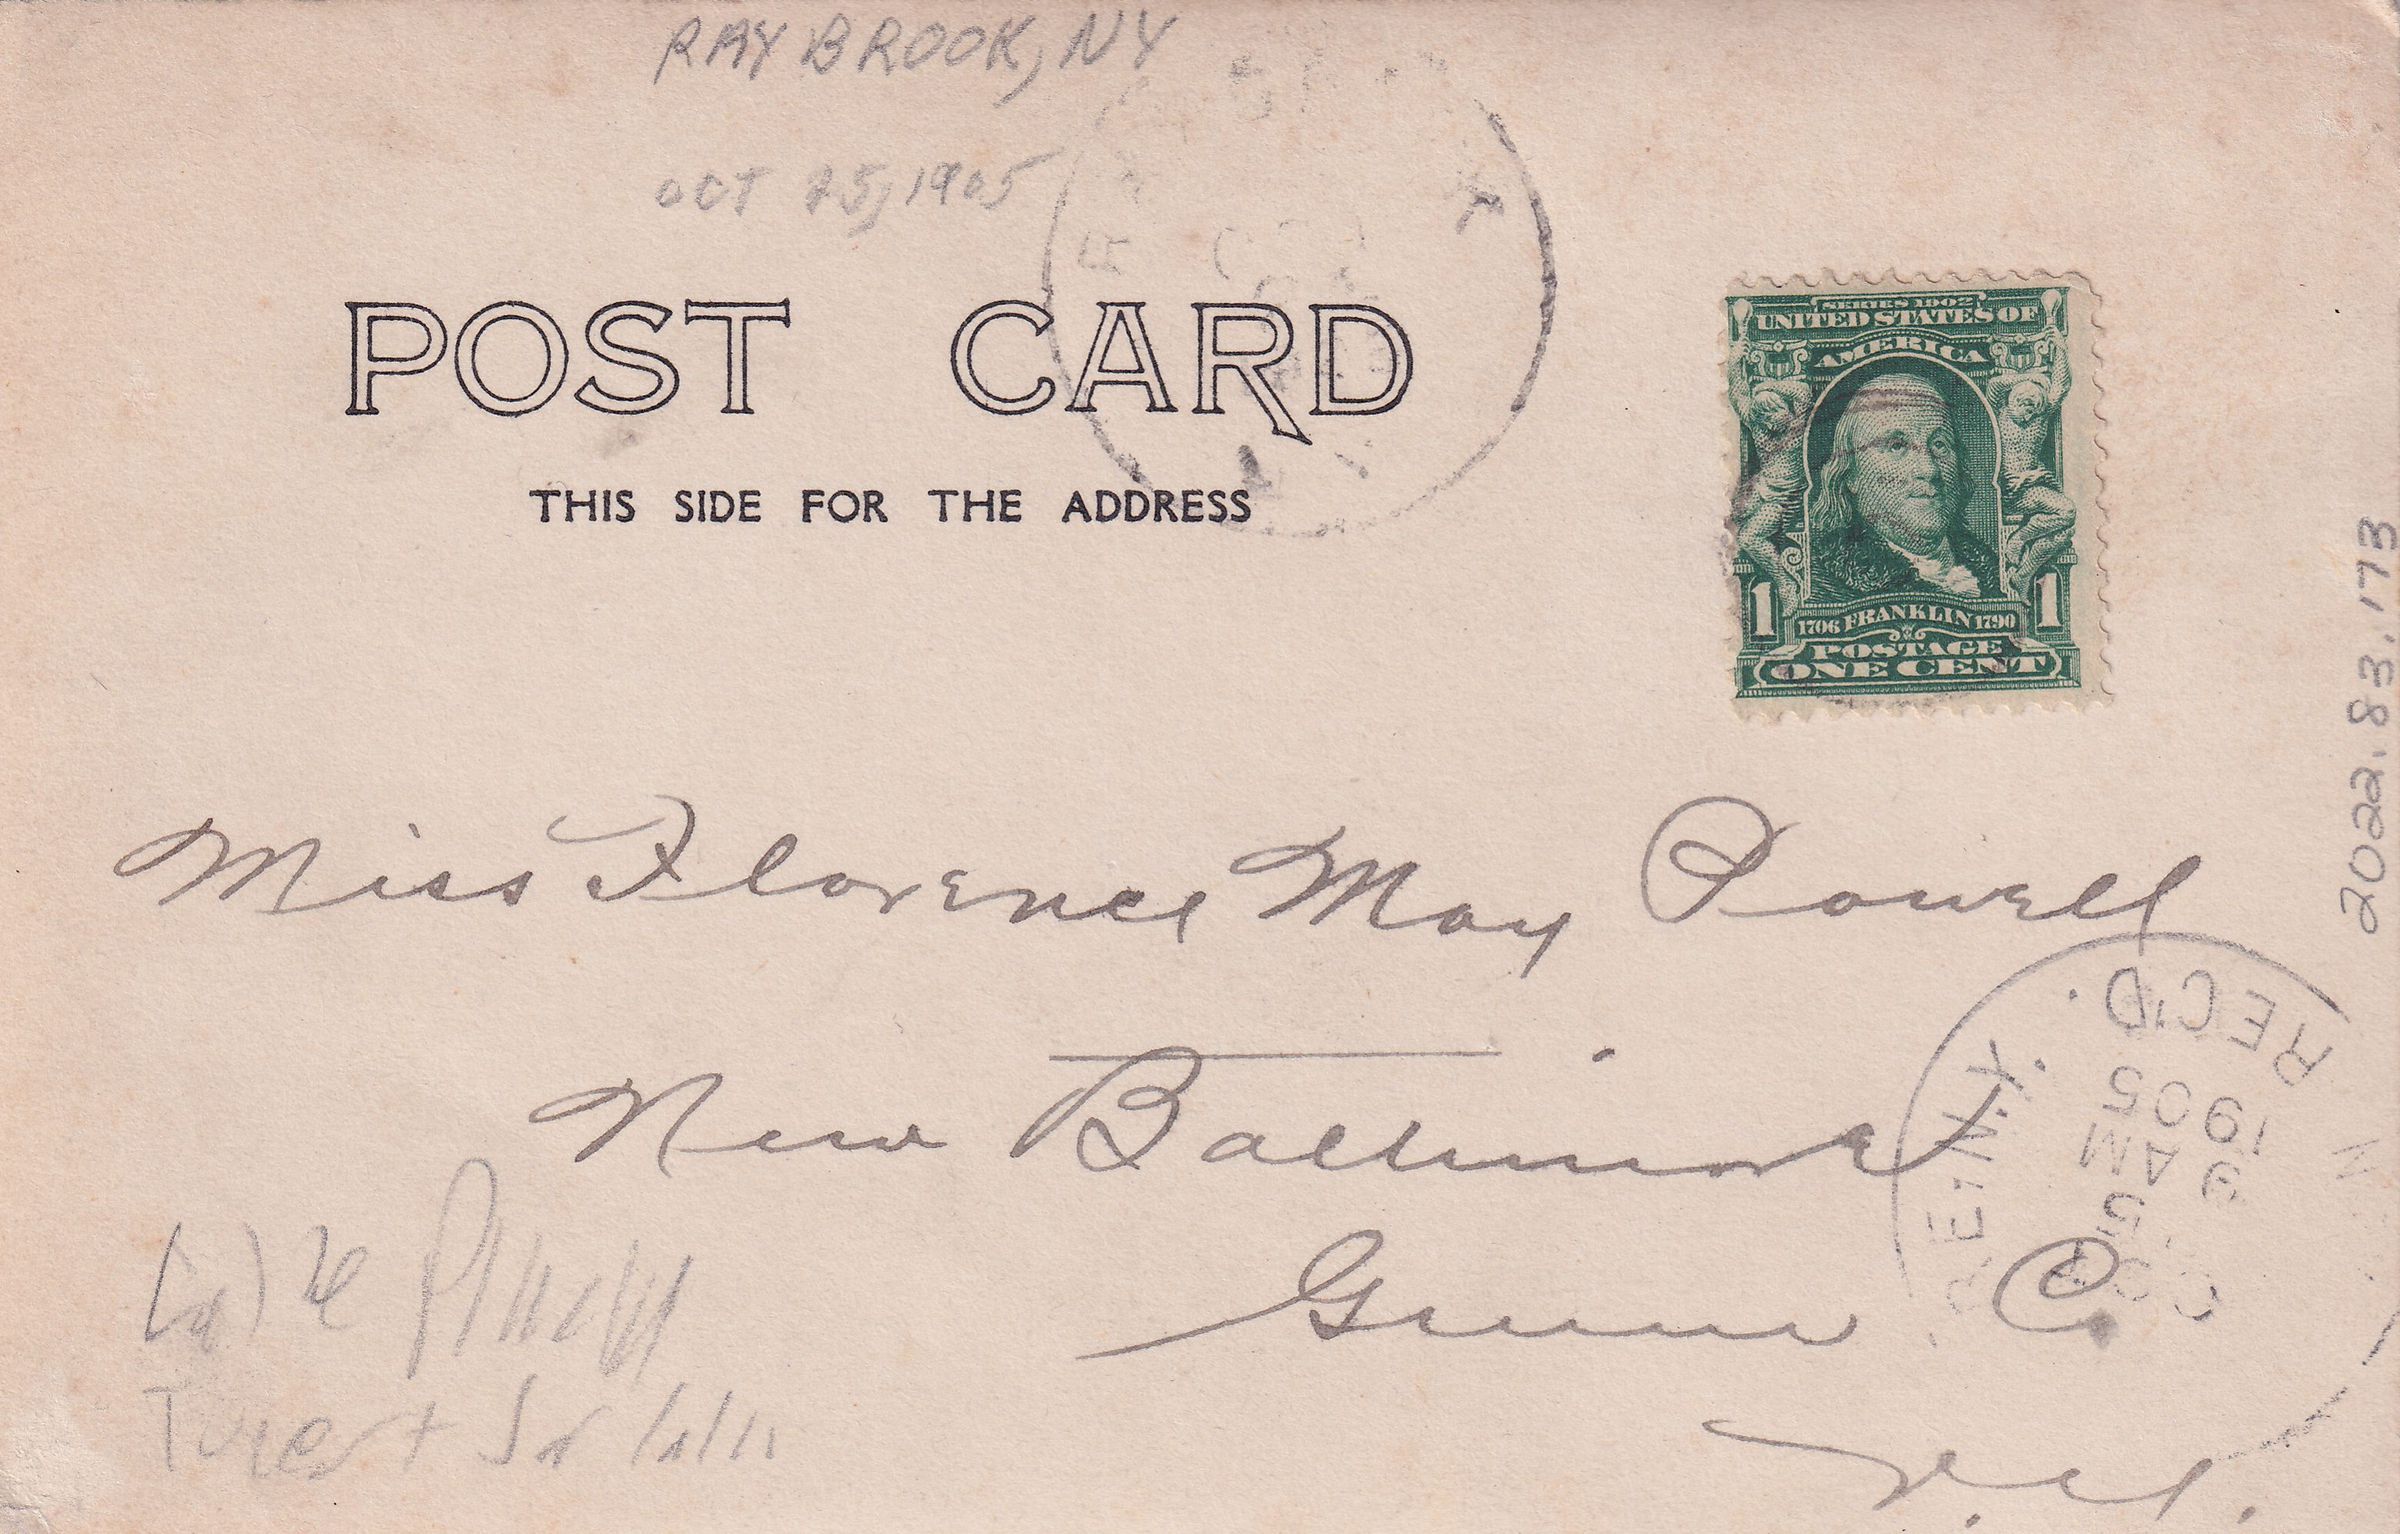 RAY BROOK, NY
OCT 25, 1905
POST CARD
THIS SIDE FOR THE ADDRESS
SERIES 1902
UNITED STATES OF
AMERICA
1706 FRANKLIN 1790
1 1
POSTAGE
ONE CENT
2022.83.173
Miss Florence May Powell
New Baltimore
Greene Co.
N.Y.
N.Y.
REC'D.
OCT
5
9 AM
1905